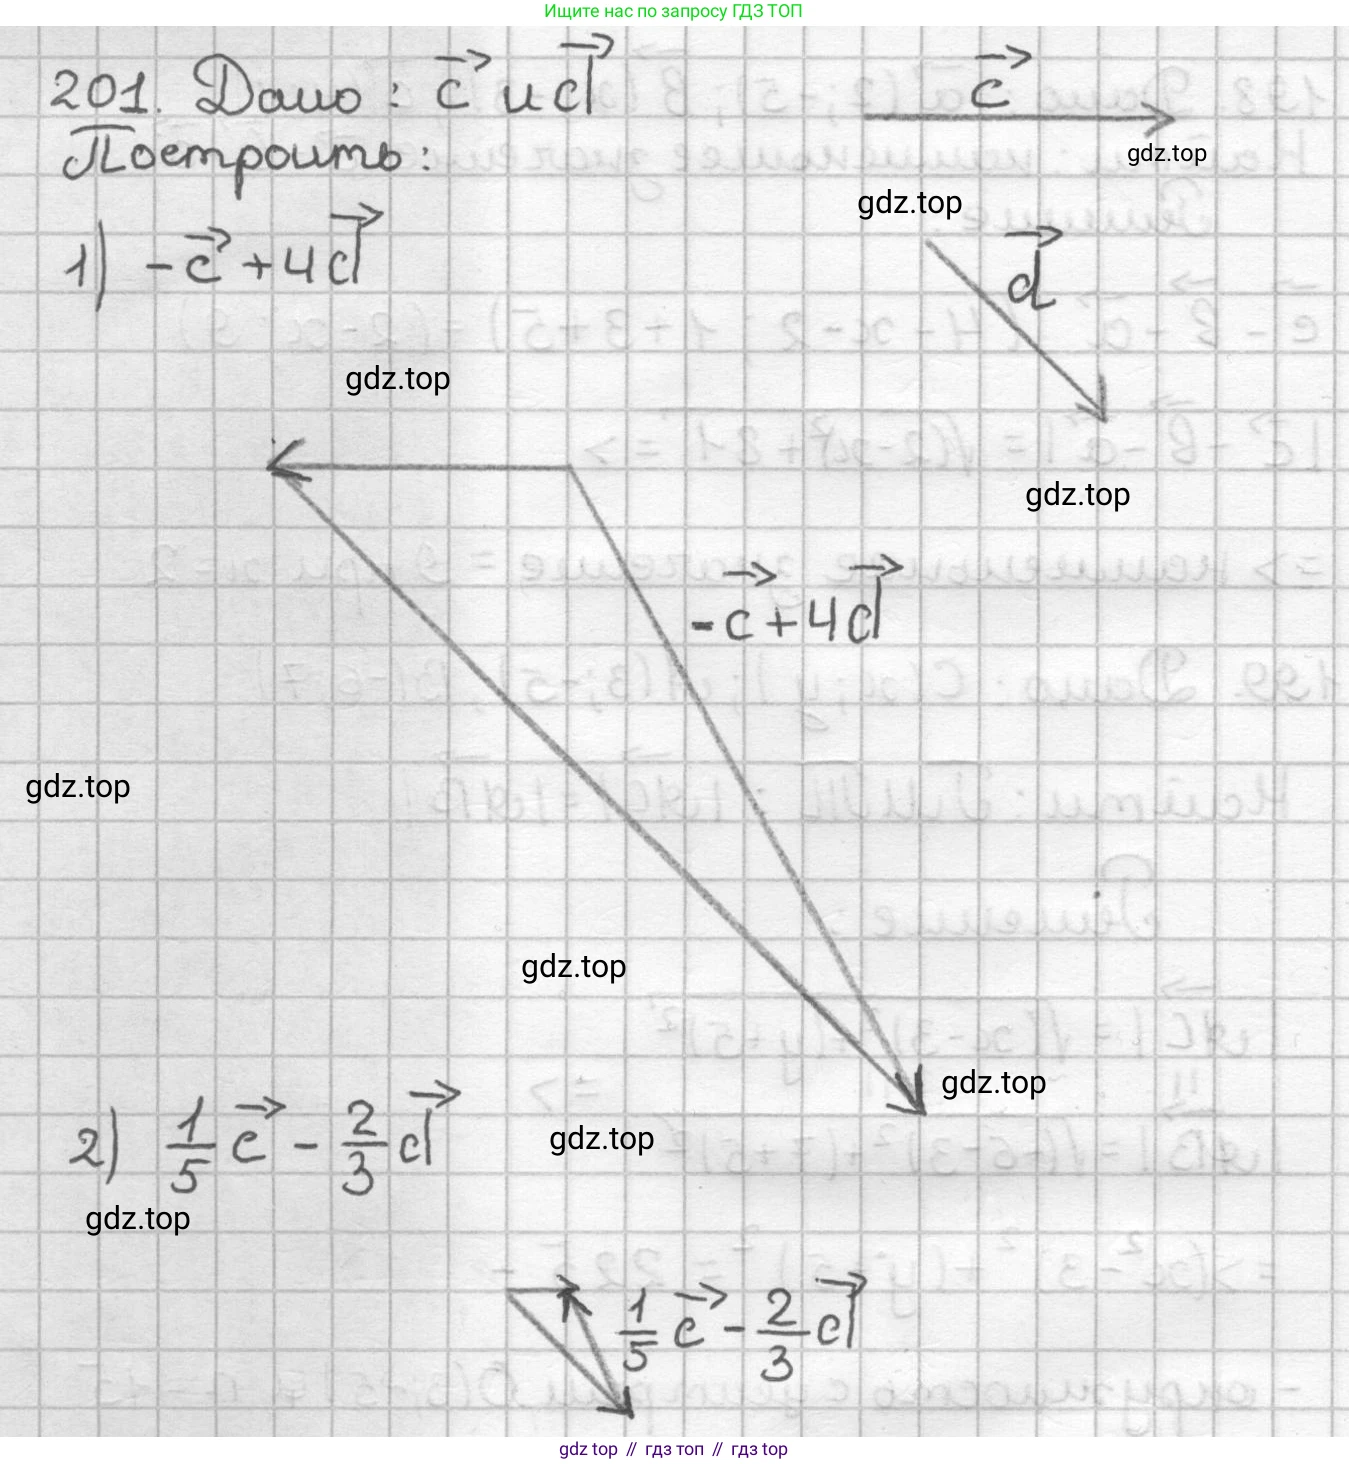 Ищите нас по запросу ГДЗ ТОП
201. Дано: c⃗ и d⃗
c⃗
Построить:
gdz.top
gdz.top
d⃗
1) -c⃗ + 4d⃗
gdz.top
gdz.top
-c⃗ + 4d⃗
gdz.top
gdz.top
gdz.top
2) 1/5 c⃗ - 2/3 d⃗
gdz.top
gdz.top
1/5 c⃗ - 2/3 d⃗
gdz top // гдз топ // гдз top